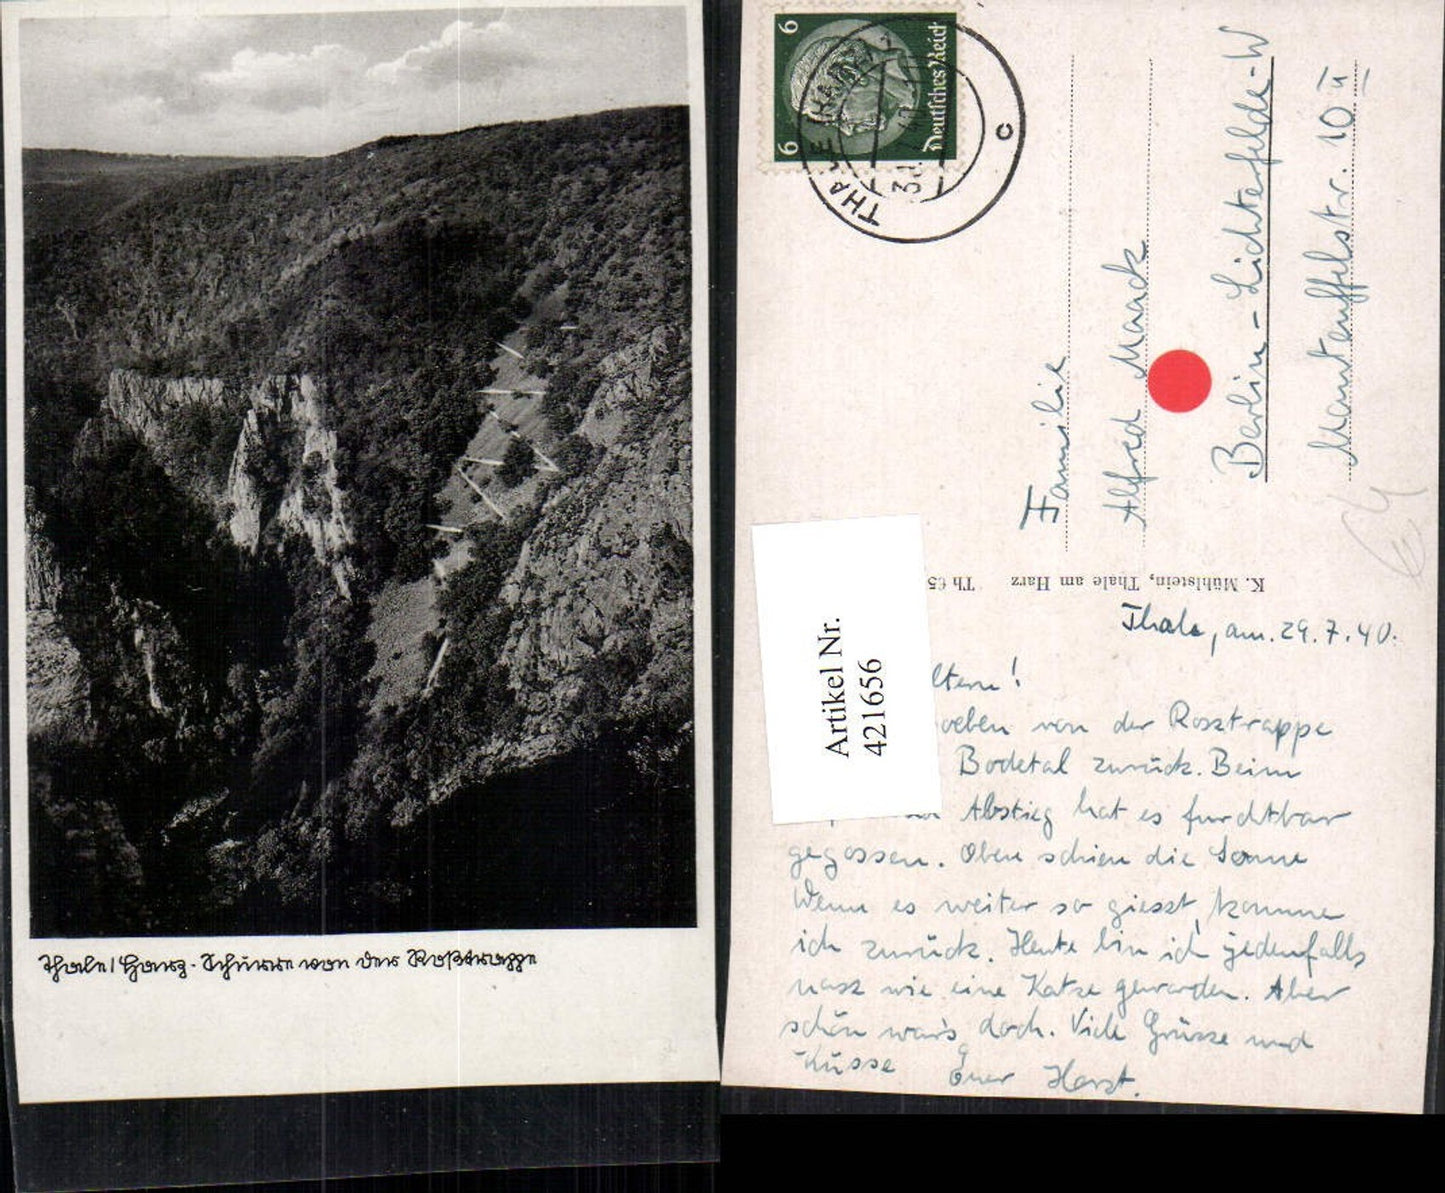 Thale/Harz. Schurre von der Roßtrappe
6
6
Deutsches Reich
THALE (HARZ) 1
c
Familie
Alfred Maack
Berlin-Lichterfelde-W
Manteuffelstr. 10 II
K. Mühlstein, Thale am Harz Th 65
Artikel Nr.
421656
Thale, am. 29.7.40.
ltern!
soeben von der Rosstrappe
Bodetal zurück. Beim
Abstieg hat es furchtbar
gegossen. Oben schien die Sonne
Wenn es weiter so giesst, komme
ich zurück. Heute bin ich jedenfalls
nass wie eine Katze geworden. Aber
schön war's doch. Viele Grüsse und
Küsse Euer Horst.